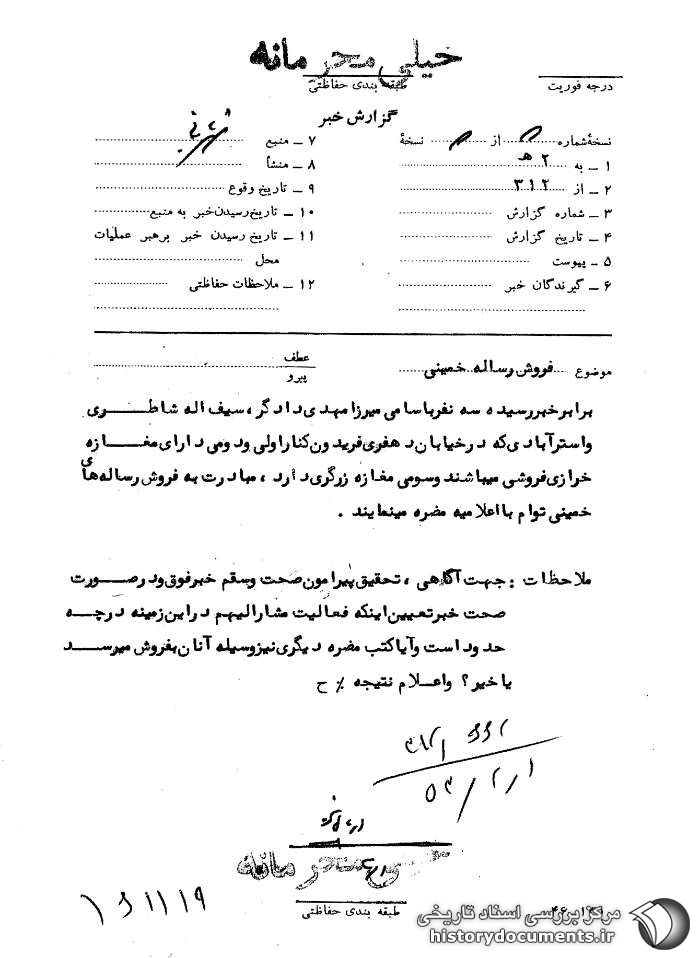 خیلی محرمانه
طبقه بندی حفاظتی
درجه فوریت
گزارش خبر
نسخهٔ شماره از نسخهٔ
۱ ـ به ۲ هـ
۲ ـ از ۳۱۲
۳ ـ شماره گزارش
۴ ـ تاریخ گزارش
۵ ـ پیوست
۶ ـ گیرندگان خبر
۷ ـ منبع
۸ ـ منشأ
۹ ـ تاریخ وقوع
۱۰ ـ تاریخ رسیدن خبر به منبع
۱۱ ـ تاریخ رسیدن خبر برهبر عملیات
محل
۱۲ ـ ملاحظات حفاظتی
موضوع فروش رساله خمینی
عطف
پیرو
برابر خبر رسیده سه نفر باسامی میرزا مهدی دادگر، سیف اله شاطری
واستر آبادی که در خیابان دهفری فریدون کنار اولی ودومی دارای مغازه
خرازی فروشی میباشند وسومی مغازه زرگری دارد، مبادرت به فروش رساله های
خمینی توام با اعلامیه مضره مینمایند .
ملاحظات : جهت آگاهی ، تحقیق پیرامون صحت وسقم خبر فوق ودر صورت
صحت خبر تعیین اینکه فعالیت مشارالیهم در این زمینه در چه
حدود است وآیا کتب مضره دیگری نیز وسیله آنان بفروش میرسد
یا خیر؟ واعلام نتیجه ٪ ح
خیلی محرمانه
طبقه بندی حفاظتی
مرکز بررسی اسناد تاریخی
historydocuments.ir